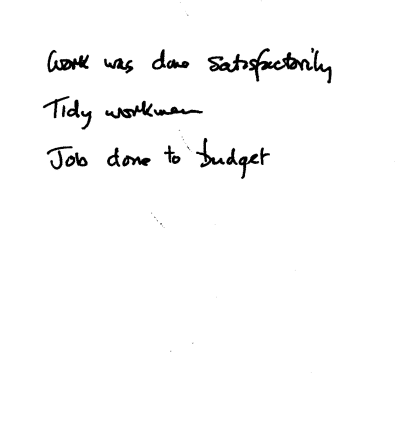 Work was done satisfactorily
Tidy workmen
Job done to budget